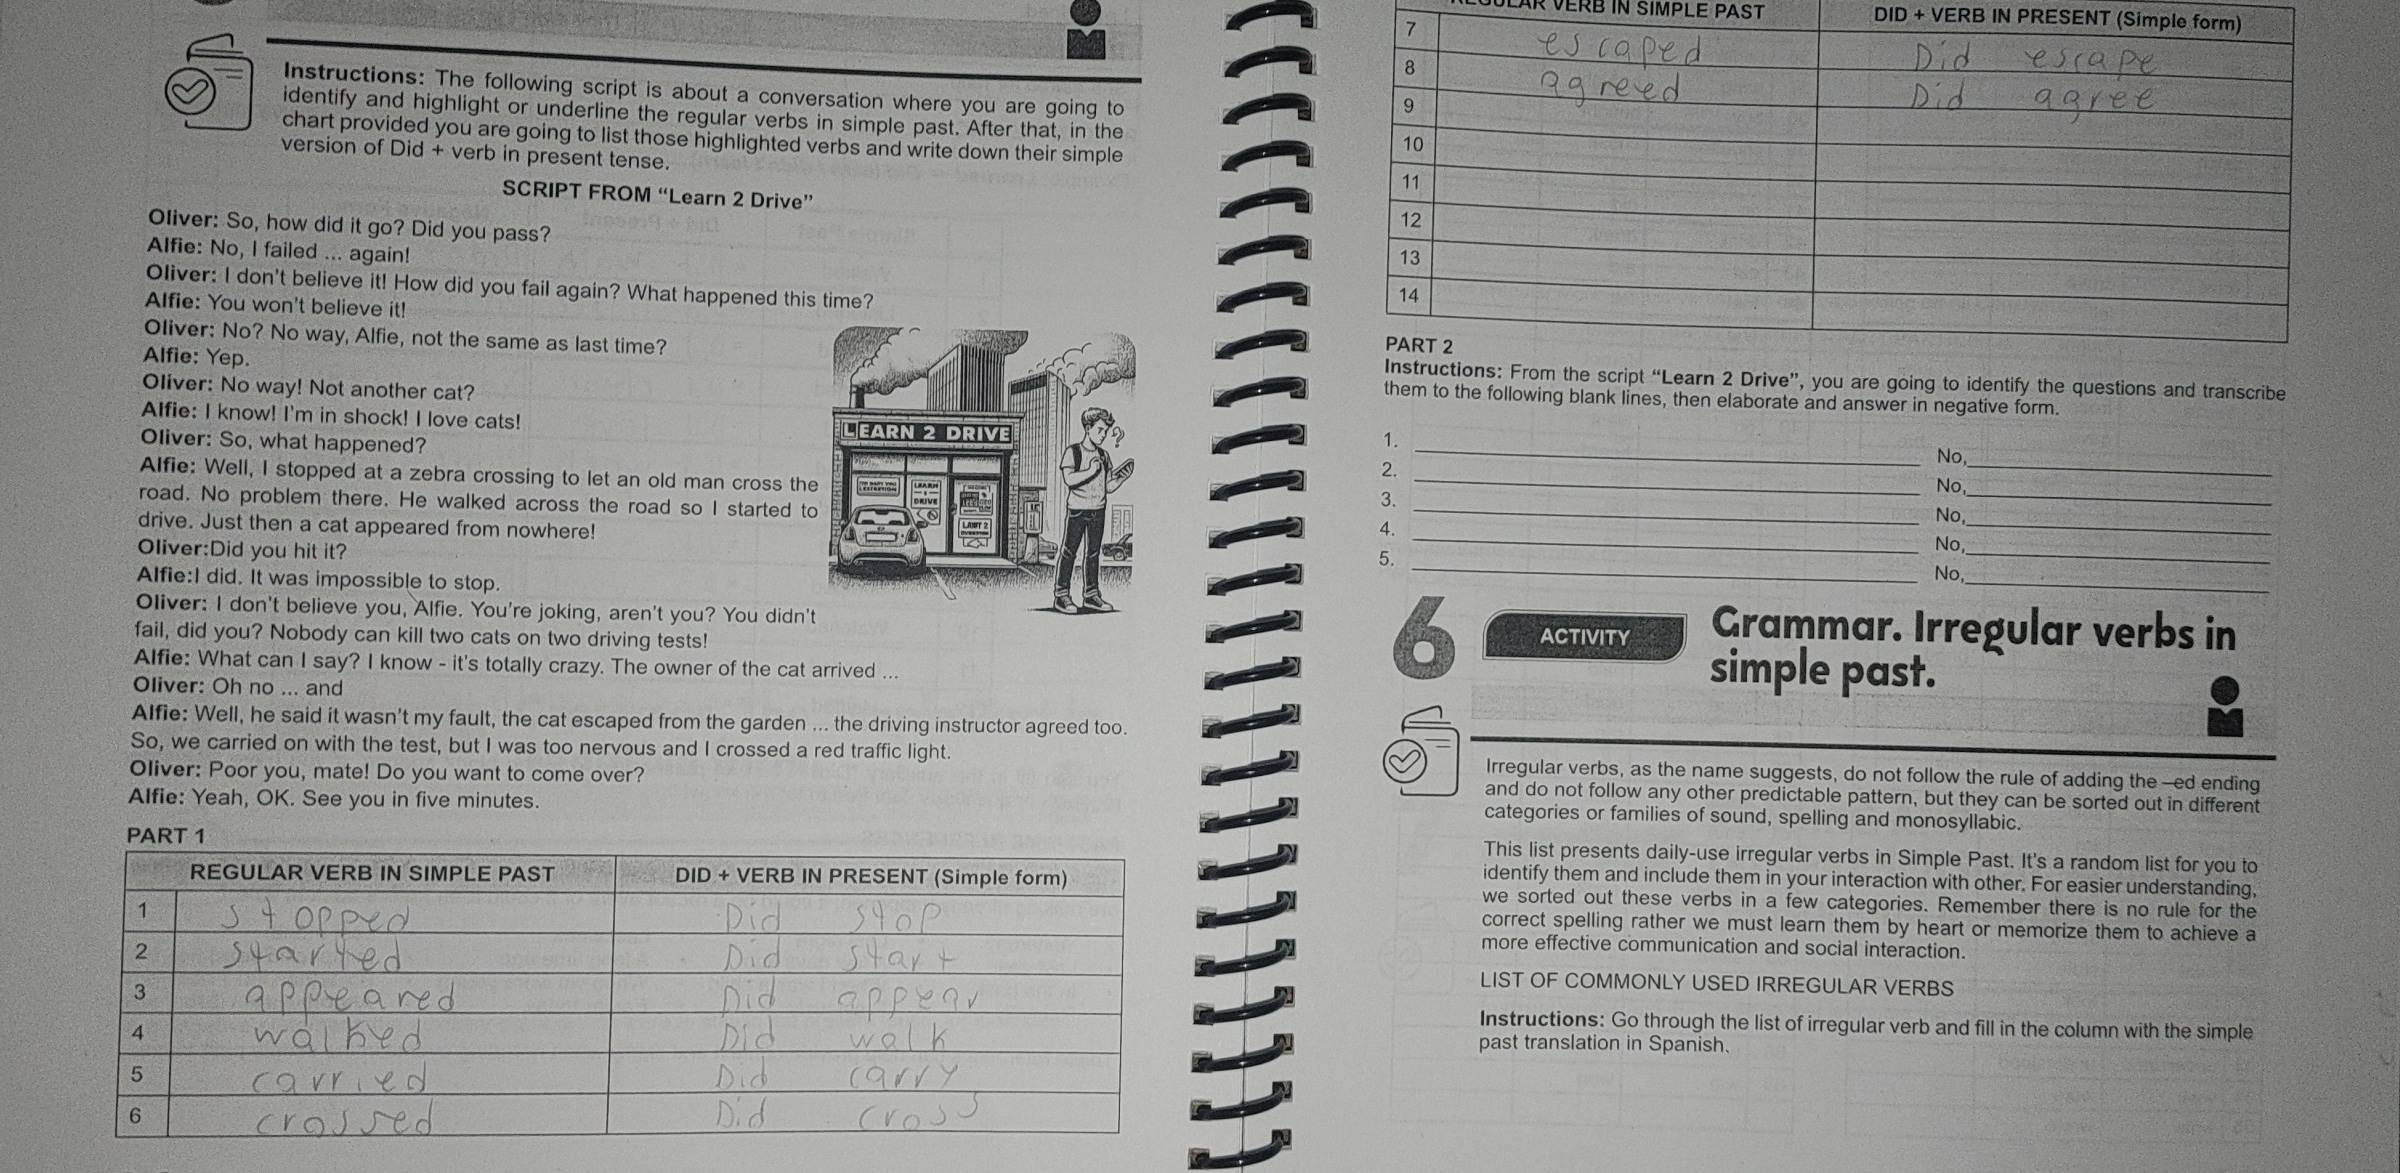 Instructions: The following script is about a conversation where you are going to
identify and highlight or underline the regular verbs in simple past. After that, in the
chart provided you are going to list those highlighted verbs and write down their simple
version of Did + verb in present tense.
SCRIPT FROM “Learn 2 Drive”
Oliver: So, how did it go? Did you pass?
Alfie: No, I failed ... again!
Oliver: I don't believe it! How did you fail again? What happened this time?
Alfie: You won't believe it!
Oliver: No? No way, Alfie, not the same as last time?
Alfie: Yep.
Oliver: No way! Not another cat?
Alfie: I know! I'm in shock! I love cats!
Oliver: So, what happened?
Alfie: Well, I stopped at a zebra crossing to let an old man cross the
road. No problem there. He walked across the road so I started to
drive. Just then a cat appeared from nowhere!
Oliver:Did you hit it?
Alfie:I did. It was impossible to stop.
Oliver: I don't believe you, Alfie. You're joking, aren't you? You didn't
fail, did you? Nobody can kill two cats on two driving tests!
Alfie: What can I say? I know - it's totally crazy. The owner of the cat arrived ...
Oliver: Oh no ... and
Alfie: Well, he said it wasn't my fault, the cat escaped from the garden ... the driving instructor agreed too.
So, we carried on with the test, but I was too nervous and I crossed a red traffic light.
Oliver: Poor you, mate! Do you want to come over?
Alfie: Yeah, OK. See you in five minutes.
LEARN 2 DRIVE
LEARN
DRIVE
PART 1
REGULAR VERB IN SIMPLE PAST DID + VERB IN PRESENT (Simple form)
1 stopped Did stop
2 started Did start
3 appeared Did appear
4 walked Did walk
5 carried Did carry
6 crossed Did cross
REGULAR VERB IN SIMPLE PAST DID + VERB IN PRESENT (Simple form)
7 escaped Did escape
8 agreed Did agree
9
10
11
12
13
14
PART 2
Instructions: From the script “Learn 2 Drive”, you are going to identify the questions and transcribe
them to the following blank lines, then elaborate and answer in negative form.
1. No,
2. No,
3. No,
4. No,
5. No,
6 ACTIVITY Grammar. Irregular verbs in
simple past.
Irregular verbs, as the name suggests, do not follow the rule of adding the –ed ending
and do not follow any other predictable pattern, but they can be sorted out in different
categories or families of sound, spelling and monosyllabic.
This list presents daily-use irregular verbs in Simple Past. It's a random list for you to
identify them and include them in your interaction with other. For easier understanding,
we sorted out these verbs in a few categories. Remember there is no rule for the
correct spelling rather we must learn them by heart or memorize them to achieve a
more effective communication and social interaction.
LIST OF COMMONLY USED IRREGULAR VERBS
Instructions: Go through the list of irregular verb and fill in the column with the simple
past translation in Spanish.